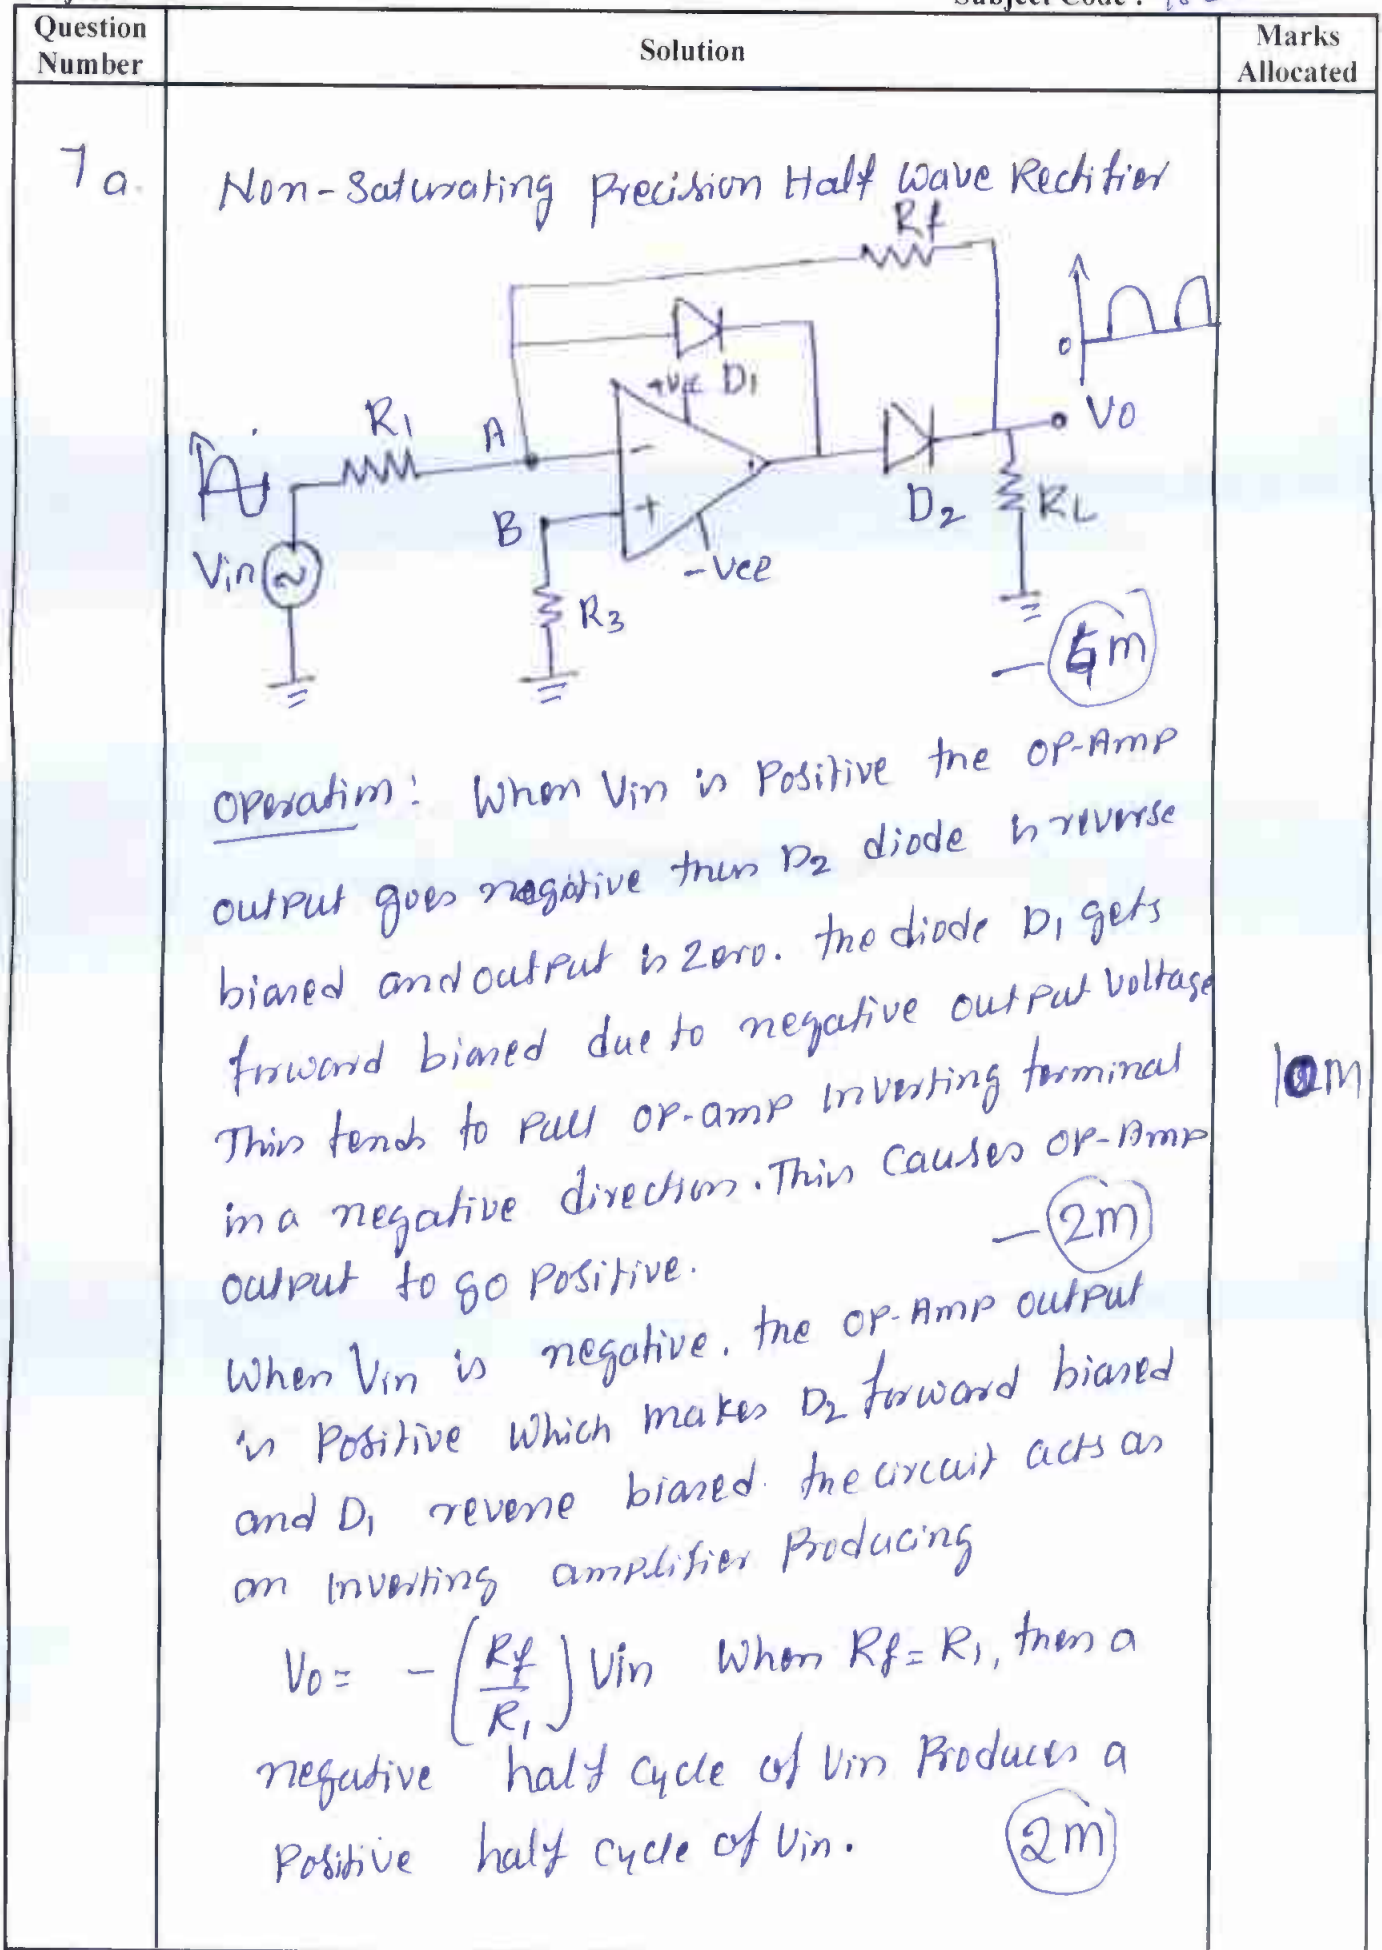 Subject Code :
Question Number
Solution
Marks Allocated
7a.
Non-Saturating Precision Half Wave Rectifier
Rf
+Vcc D1
0
R1
A
Vo
B
D2
RL
Vin
-Vee
R3
m
Operation: When Vin is Positive the OP-Amp
output goes negative thus D2 diode is reverse
biased and output is Zero. the diode D1 gets
forward biased due to negative output voltage
This tends to Pull OP-amp Inverting terminal
10M
in a negative direction. This Causes OP-Amp
- 2m
output to go Positive.
When Vin is negative. the OP-Amp output
is Positive Which makes D2 forward biased
and D1 reverse biased. the circuit acts as
an Inverting amplifier Producing
Vo = - (Rf/R1) Vin When Rf = R1, then a
negative half cycle of Vin Produces a
Positive half cycle of Vin.
2m